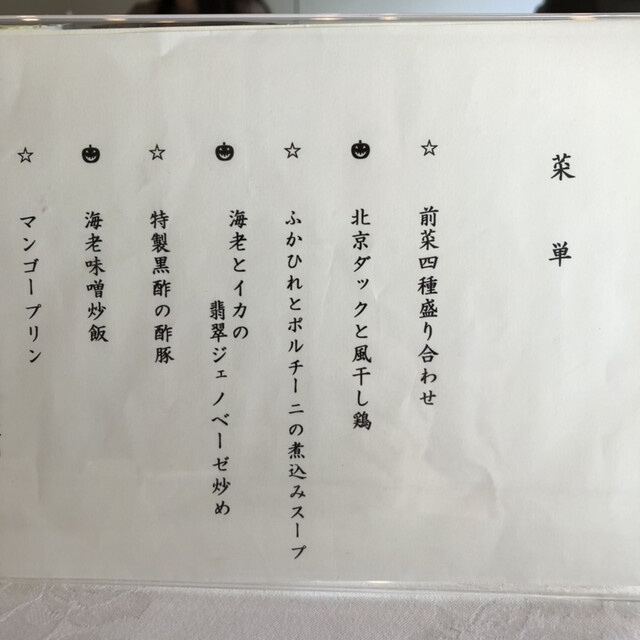 菜単
☆ 前菜四種盛り合わせ
🎃 北京ダックと風干し鶏
☆ ふかひれとポルチーニの煮込みスープ
🎃 海老とイカの
翡翠ジェノベーゼ炒め
☆ 特製黒酢の酢豚
🎃 海老味噌炒飯
☆ マンゴープリン